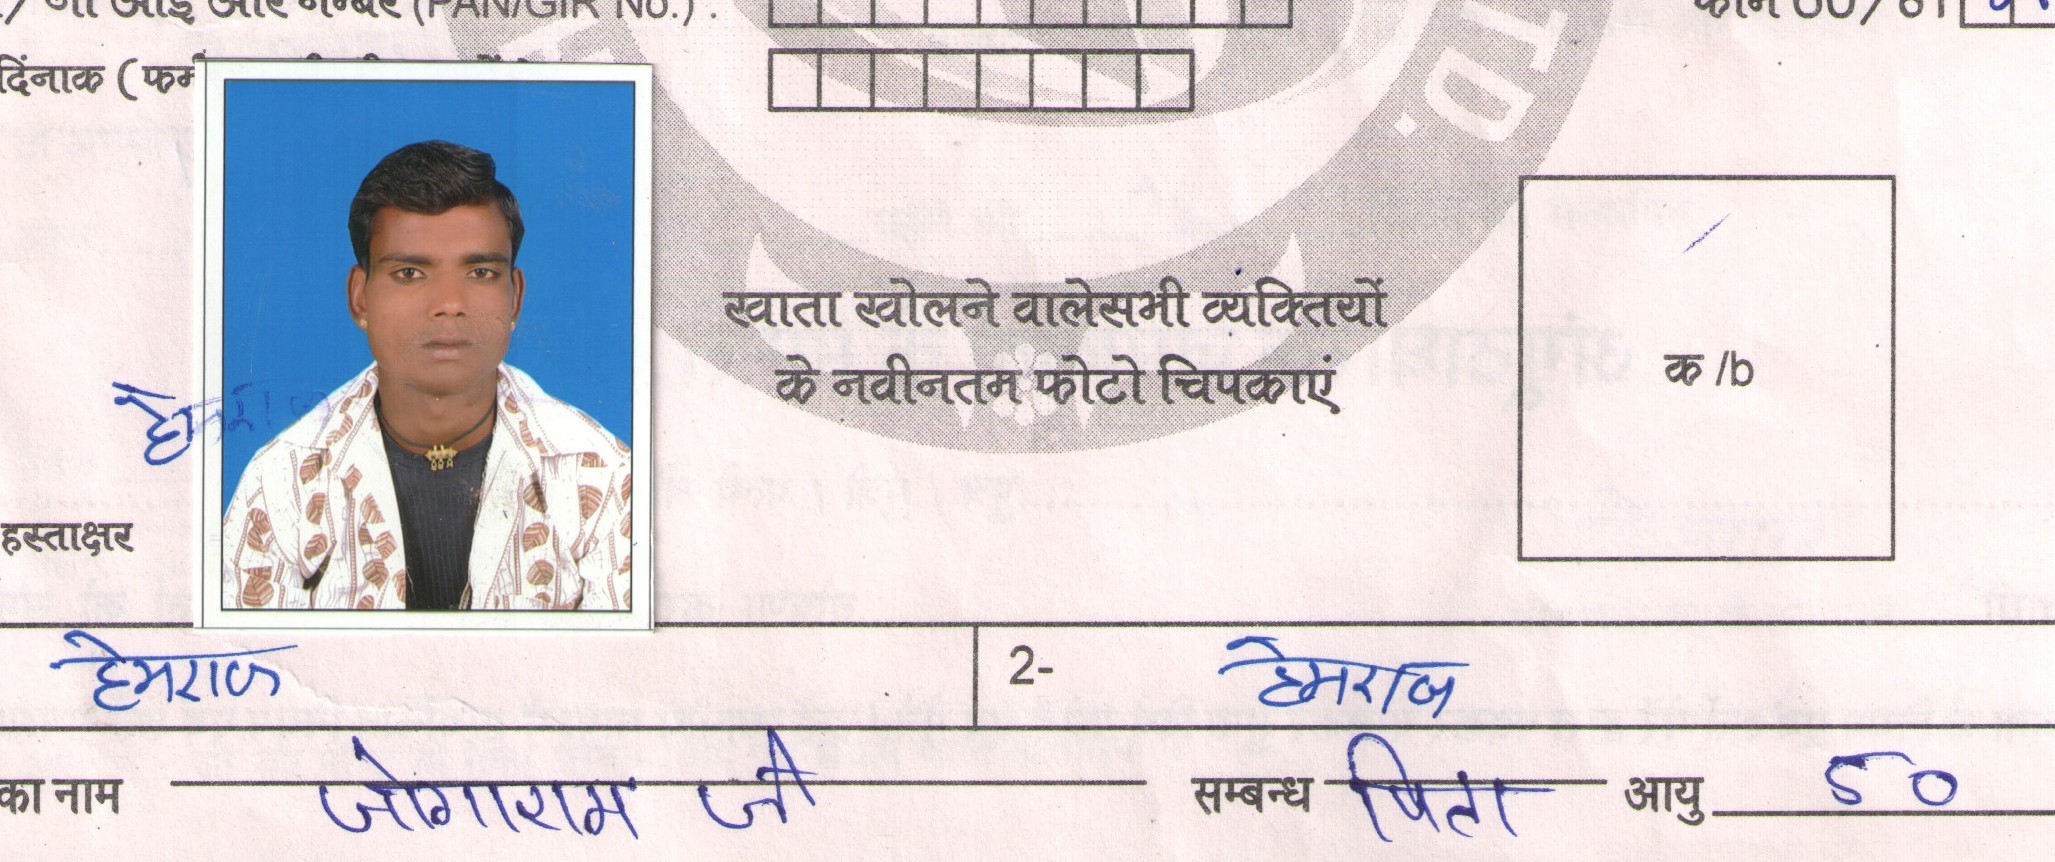 / जी आई आर नम्बर (PAN/GIR No.) :
फार्म 60/61
TD.
दिनाक ( फर्म
खाता खोलने वालेसभी व्यक्तियों
के नवीनतम फोटो चिपकाएं
क /b
हेमराज
हस्ताक्षर
हेमराज 2- हेमराज
का नाम जोगाराम जी सम्बन्ध पिता आयु 50